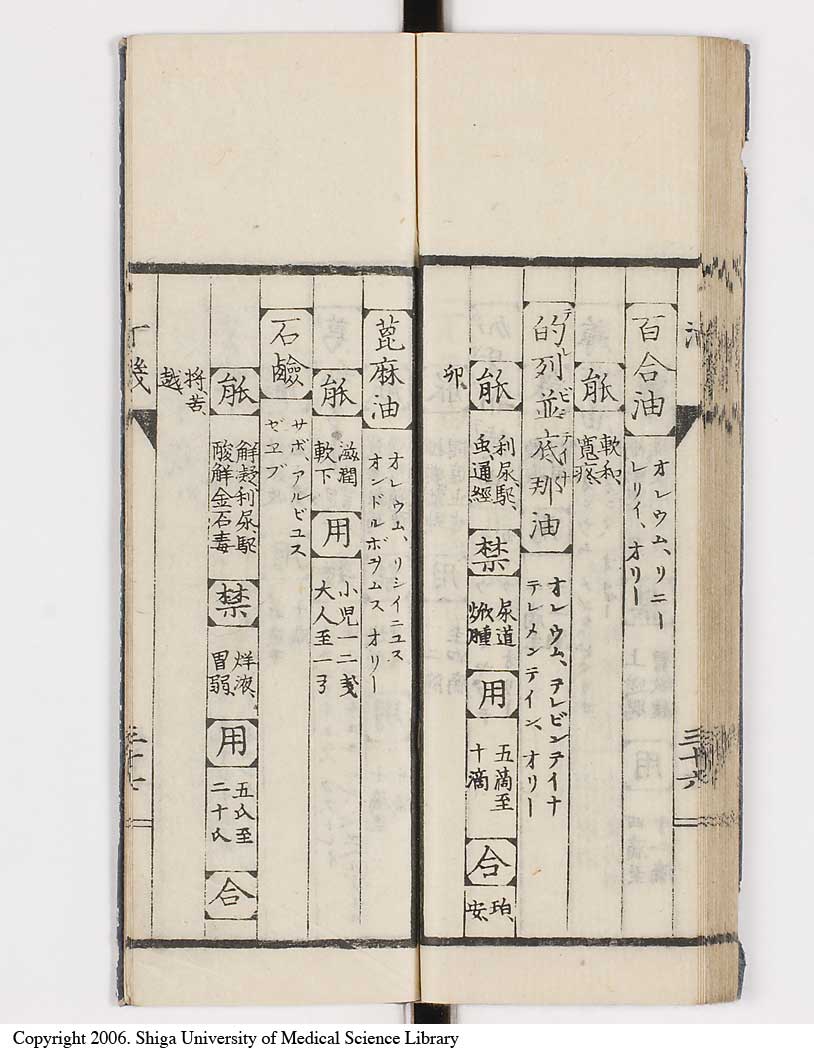 百合油
オレウム、リニー
レリイ、オリー
能
軟和、
寛疼
的列並底那油
テレビンテイナ
オレウム、テレビンテイナ
テレメンテイン、オリー
能
利尿、駆
虫、通経
禁
尿道
焮腫
用
五滴至
十滴
合
珀、
安、
卯、
三十六
蓖麻油
オレウム、リシイニユス
オンドルボヲムス オリー
能
滋潤
軟下
用
小児一二戔
大人至一弓
石鹸
サボ、アルビユス
ゼエプ
能
解凝、利尿、駆
酸、解金石毒
禁
烊液、
胃弱、
用
五氏至
二十氏
合
将、苦、
越